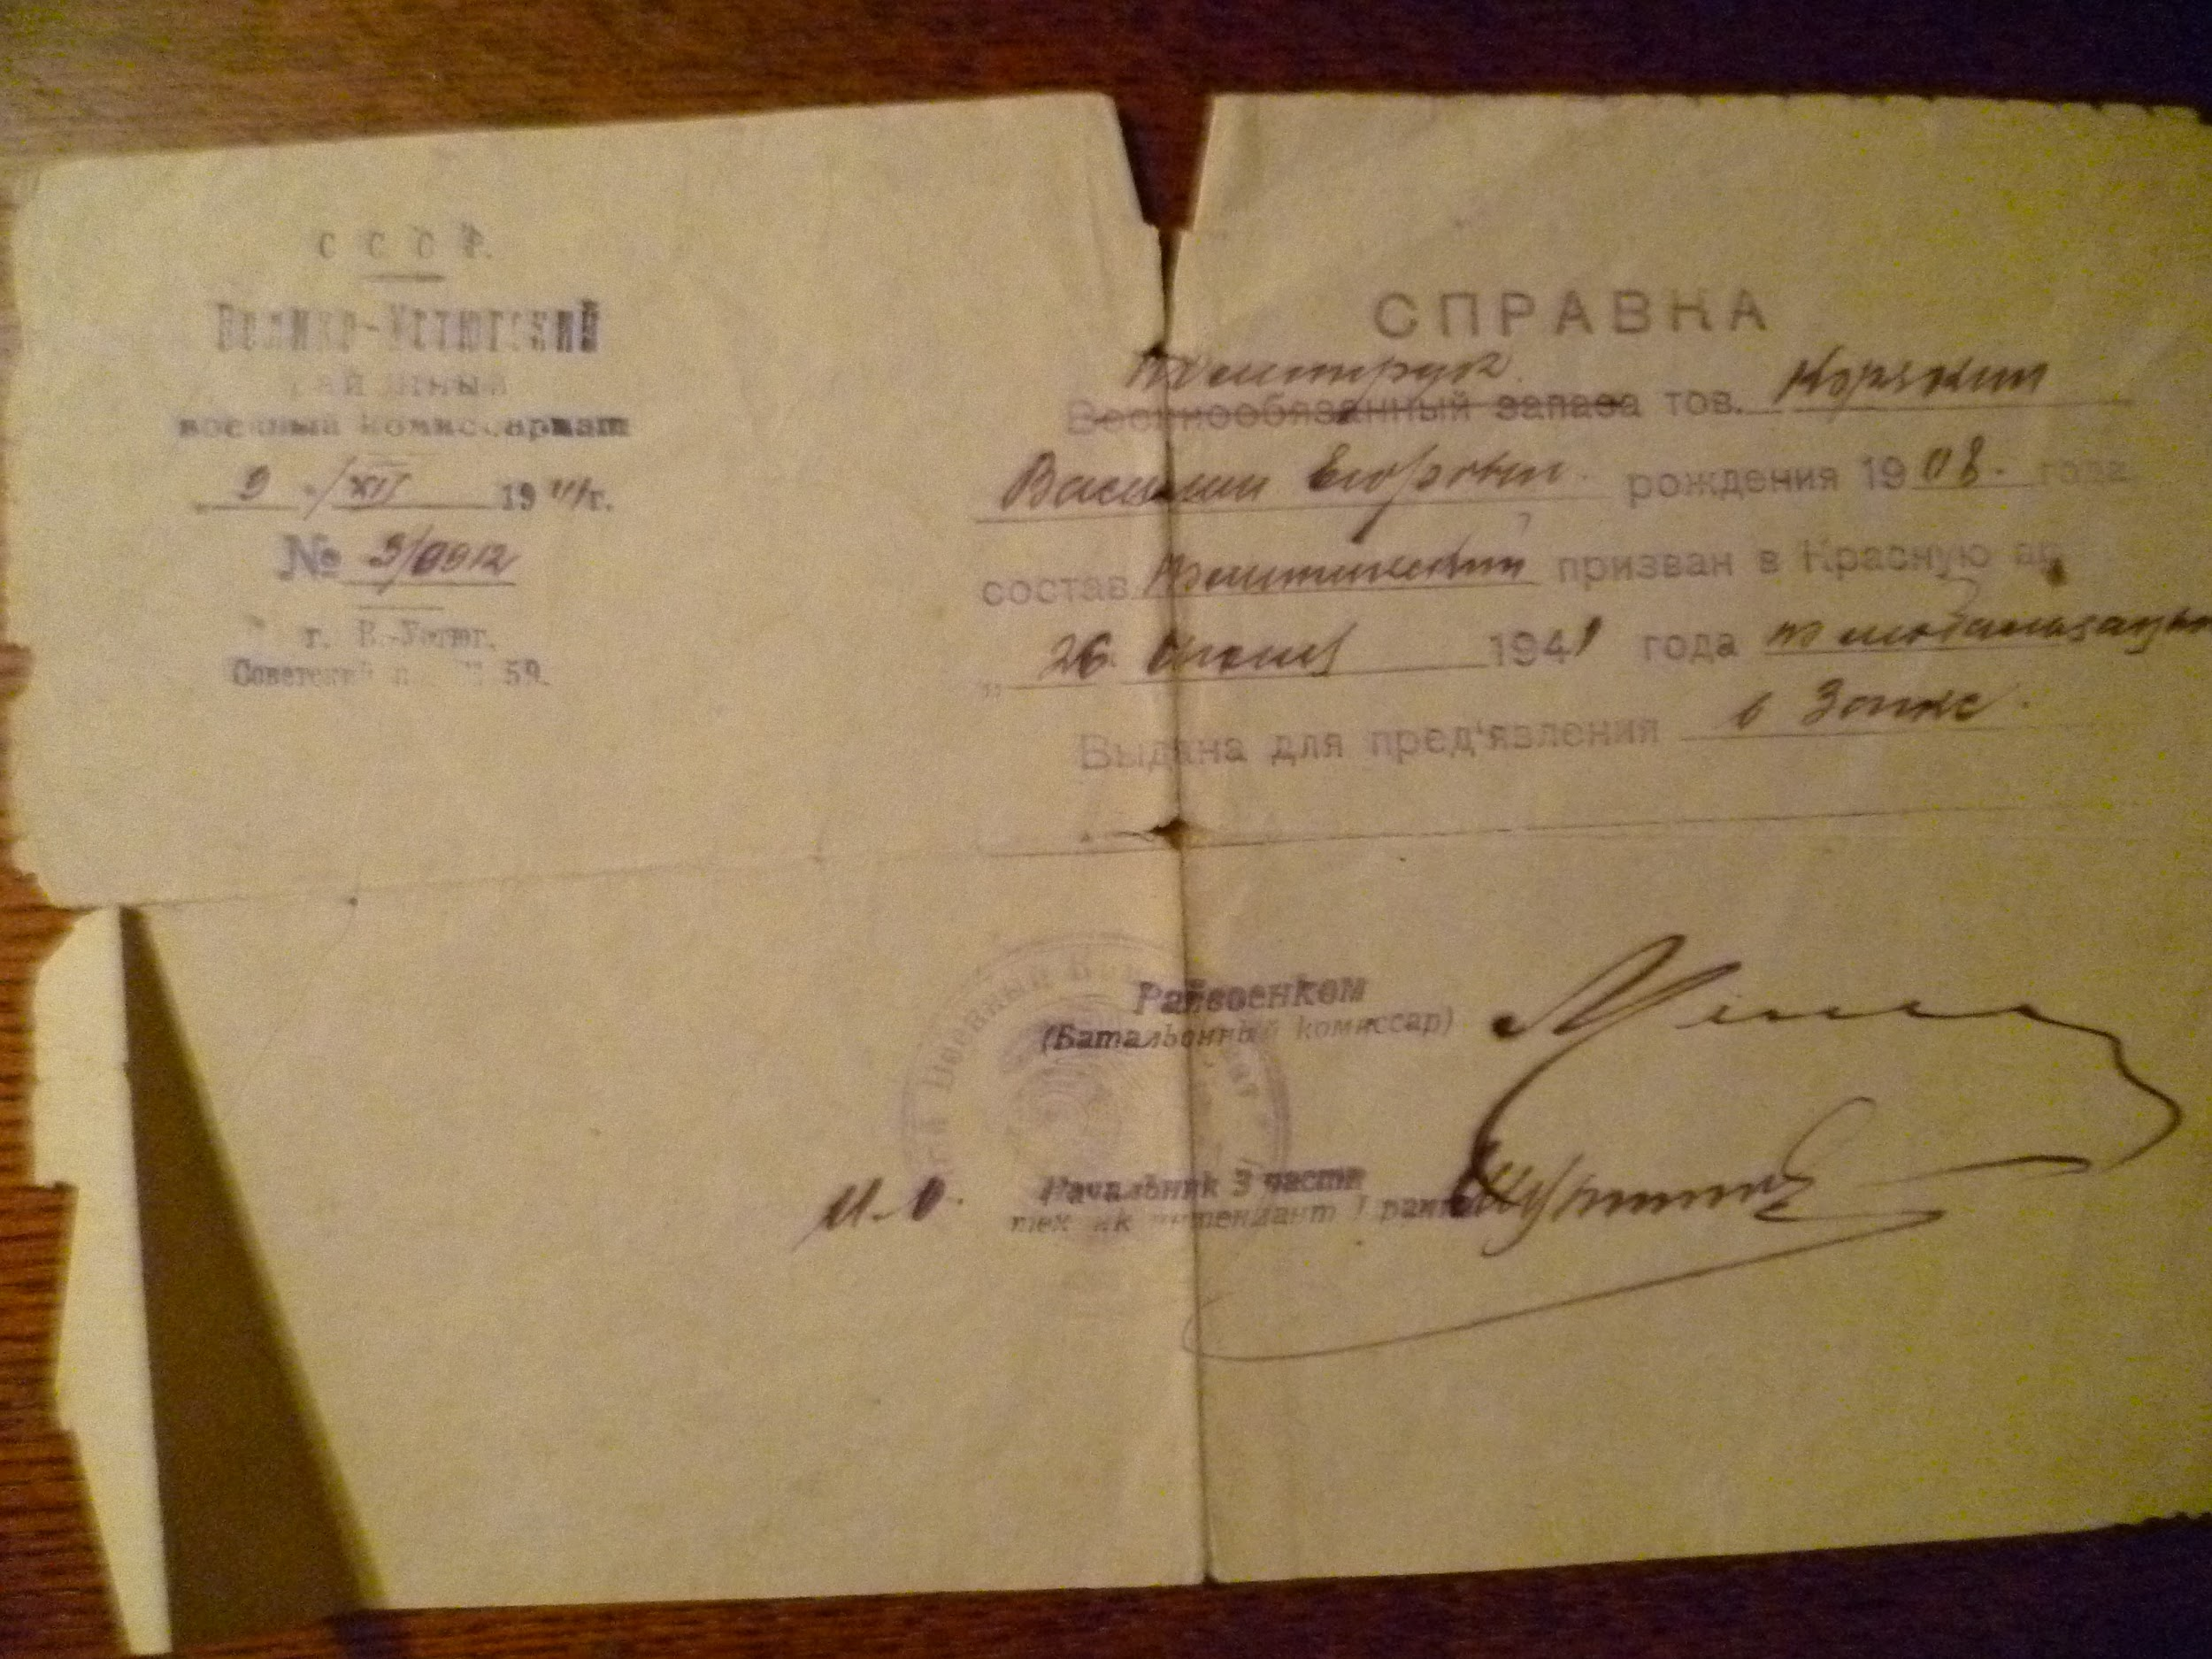 С С С Р.
Велико-Устюгский
районный
военный комиссариат
9 / XII 1941 г.
№ 3/0912
г. В.-Устюг.
Советский п 59.
СПРАВКА
Политрук
Военнообязанный запаса тов. Корякин
Василий Егорович рождения 1908. года
состав политический призван в Красную ар
„ 26 июня 1941 года по мобилизации
Выдана для пред'явления в
Райвоенком
(Батальонный комиссар)
Военный
И.О. Начальник 3 части
тех ик интендант 1 ранга